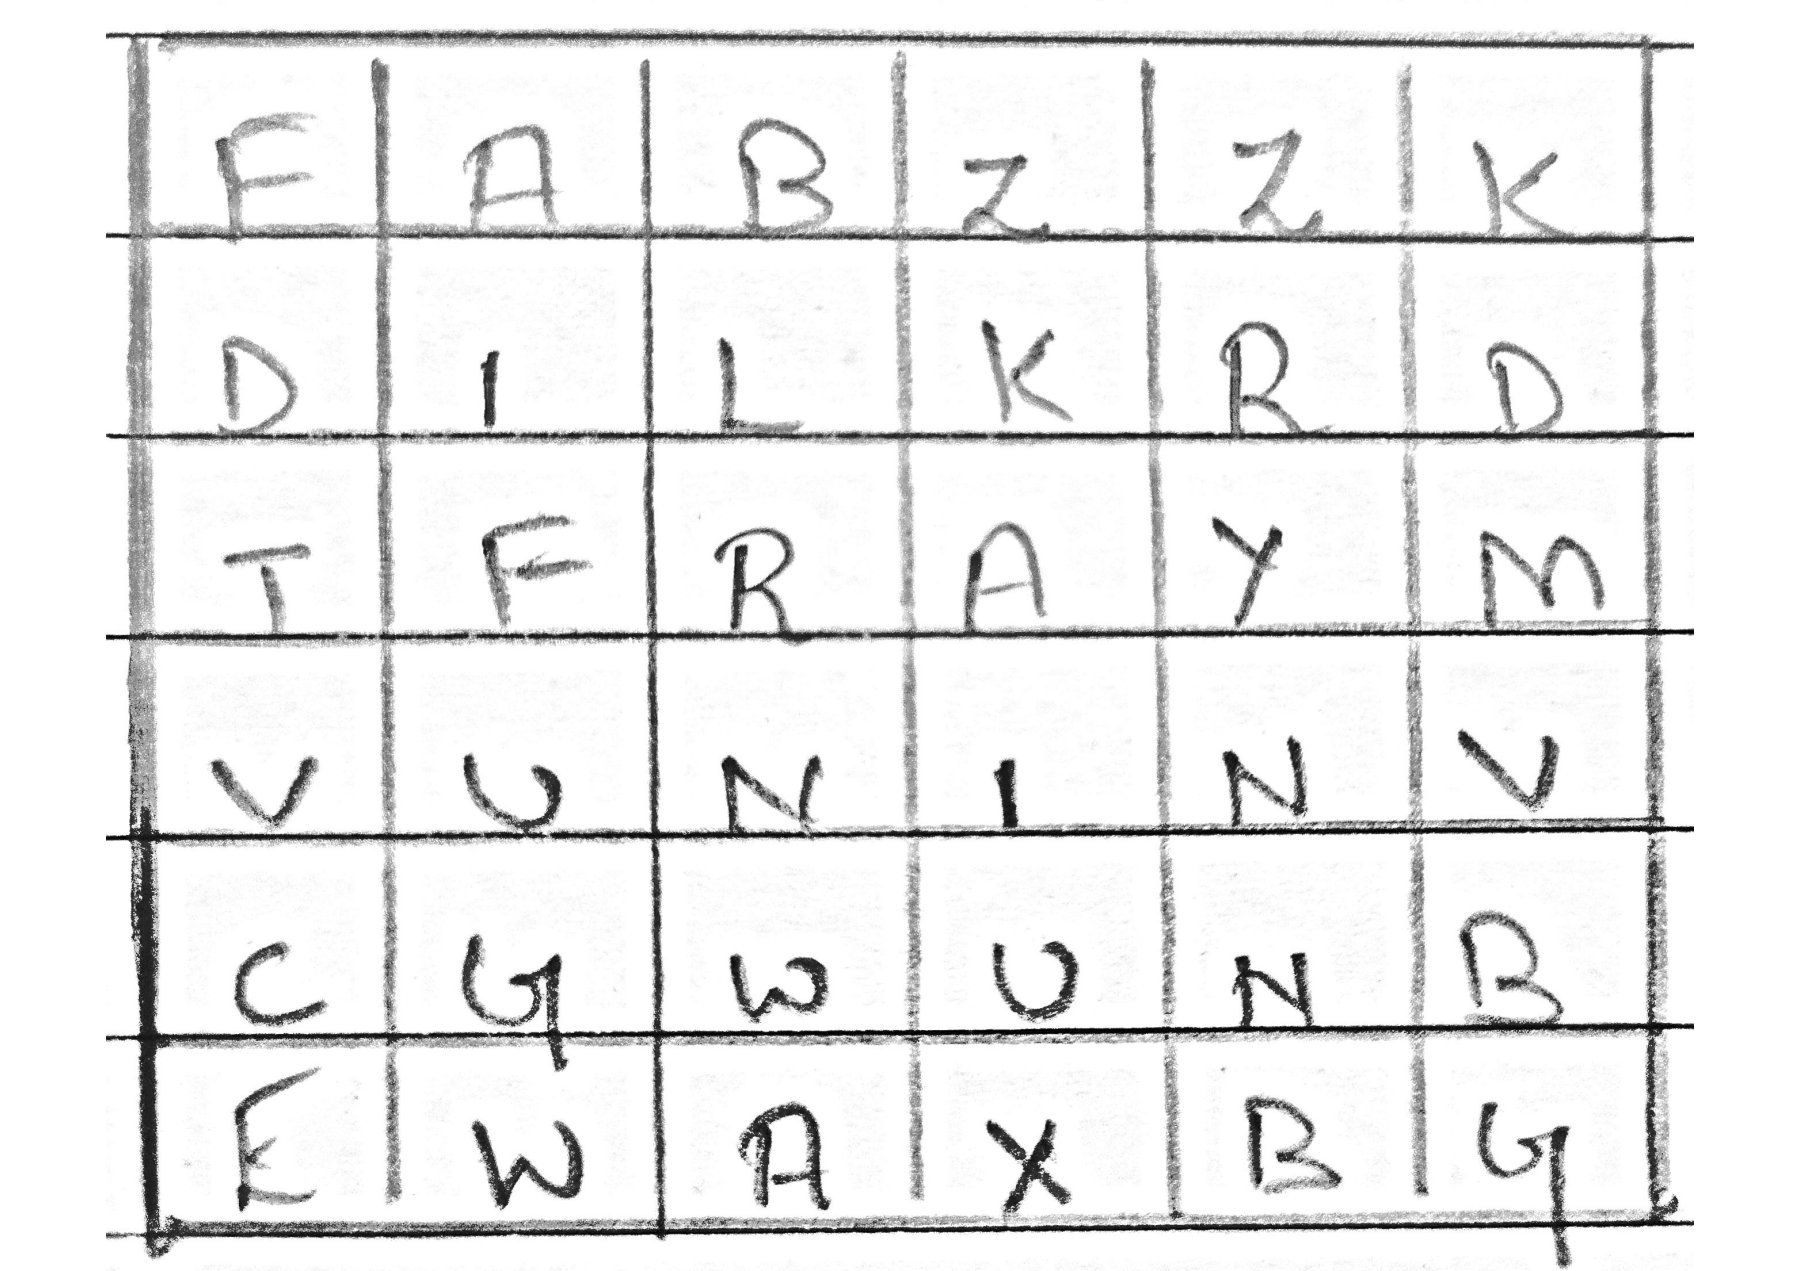 F A B Z Z K
D I L K R D
T F R A Y M
V U N I N V
C G W U N B
E W A X B G